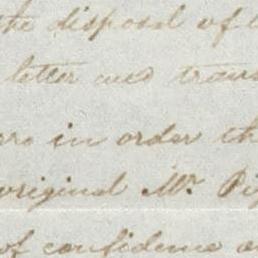 the disposal of
letter and trans
in order th
original Mr. Pi
of confidence a